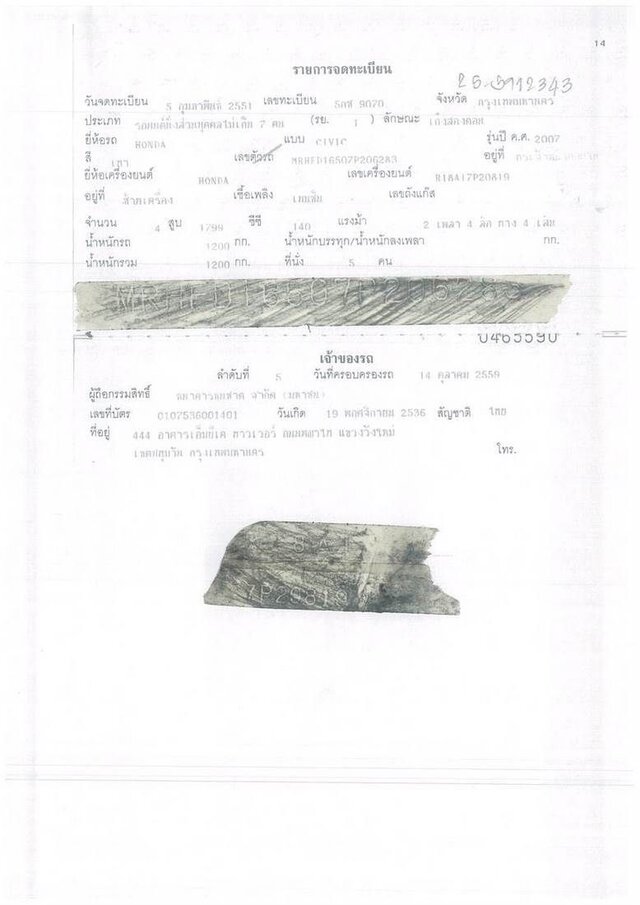 14
รายการจดทะเบียน
25-5912343
วันจดทะเบียน 5 กุมภาพันธ์ 2551 เลขทะเบียน 9070 จังหวัด กรุงเทพมหานคร
ประเภท รถยนต์นั่งส่วนบุคคลไม่เกิน 7 คน (รย. 1) ลักษณะ เก๋งสองตอน
ยี่ห้อรถ HONDA แบบ CIVIC รุ่นปี ค.ศ. 2007
สี เทา เลขตัวรถ MRHFD16507P206283 อยู่ที่
ยี่ห้อเครื่องยนต์ HONDA เลขเครื่องยนต์ R18A17P20819
อยู่ที่ ซ้ายเครื่อง เชื้อเพลิง เบนซิน เลขถังแก๊ส
จำนวน 4 สูบ 1799 ซีซี 140 แรงม้า 2 เพลา 4 ล้อ ยาง 4 เส้น
น้ำหนักรถ 1200 กก. น้ำหนักบรรทุก/น้ำหนักลงเพลา กก.
น้ำหนักรวม 1200 กก. ที่นั่ง 5 คน
0465590
เจ้าของรถ
ลำดับที่ 5 วันที่ครอบครองรถ 14 ตุลาคม 2559
ผู้ถือกรรมสิทธิ์ ธนาคารธนชาต จำกัด (มหาชน)
เลขที่บัตร 0107536001401 วันเกิด 19 พฤศจิกายน 2536 สัญชาติ ไทย
ที่อยู่ 444 อาคารเอ็มบีเค ทาวเวอร์ ถนนพญาไท แขวงวังใหม่
เขตปทุมวัน กรุงเทพมหานคร โทร.
7P20819